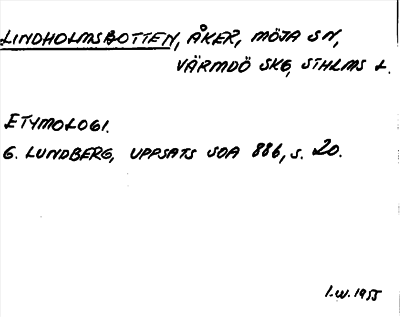 LINDHOLMSBOTTEN, ÅKER, MÖJA SN,
VÄRMDÖ SKG, STHLMS L.
ETYMOLOGI.
G. LUNDBERG, UPPSATS SOA 886, S. 20.
I.W. 1955